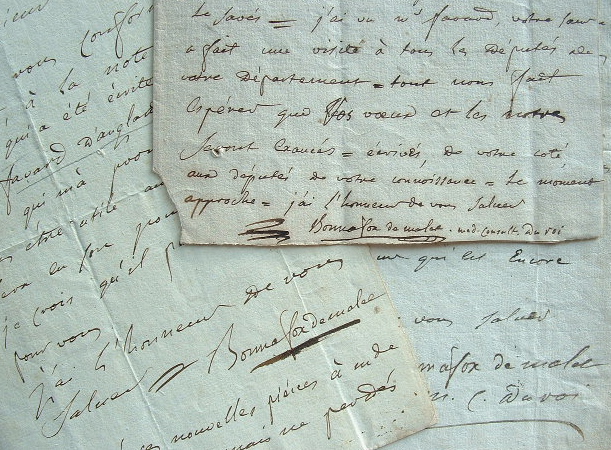 le savés = j'ai vu mr favard, votre
a fait une visité à tous les députés de
votre département = tout nous fait
espérer que vos vœux et les notres
seront exaucés = écrivés, de votre coté,
aux députés de votre connoissance = le moment
approche = j'ai l'honneur de vous saluer
Bonnafox de malet. med. consult. du roi
vous
à la note
qui a été écrite
favard D'anglas
qui m'a
être utile au
je crois qu'il
pour vous
J'ai l'honneur de vous
saluer = Bonnafox de malet
nouvelles pièces à m de
mais ne perdés
qui est Encore
vous saluer
nafox de malet
m. c. du roi